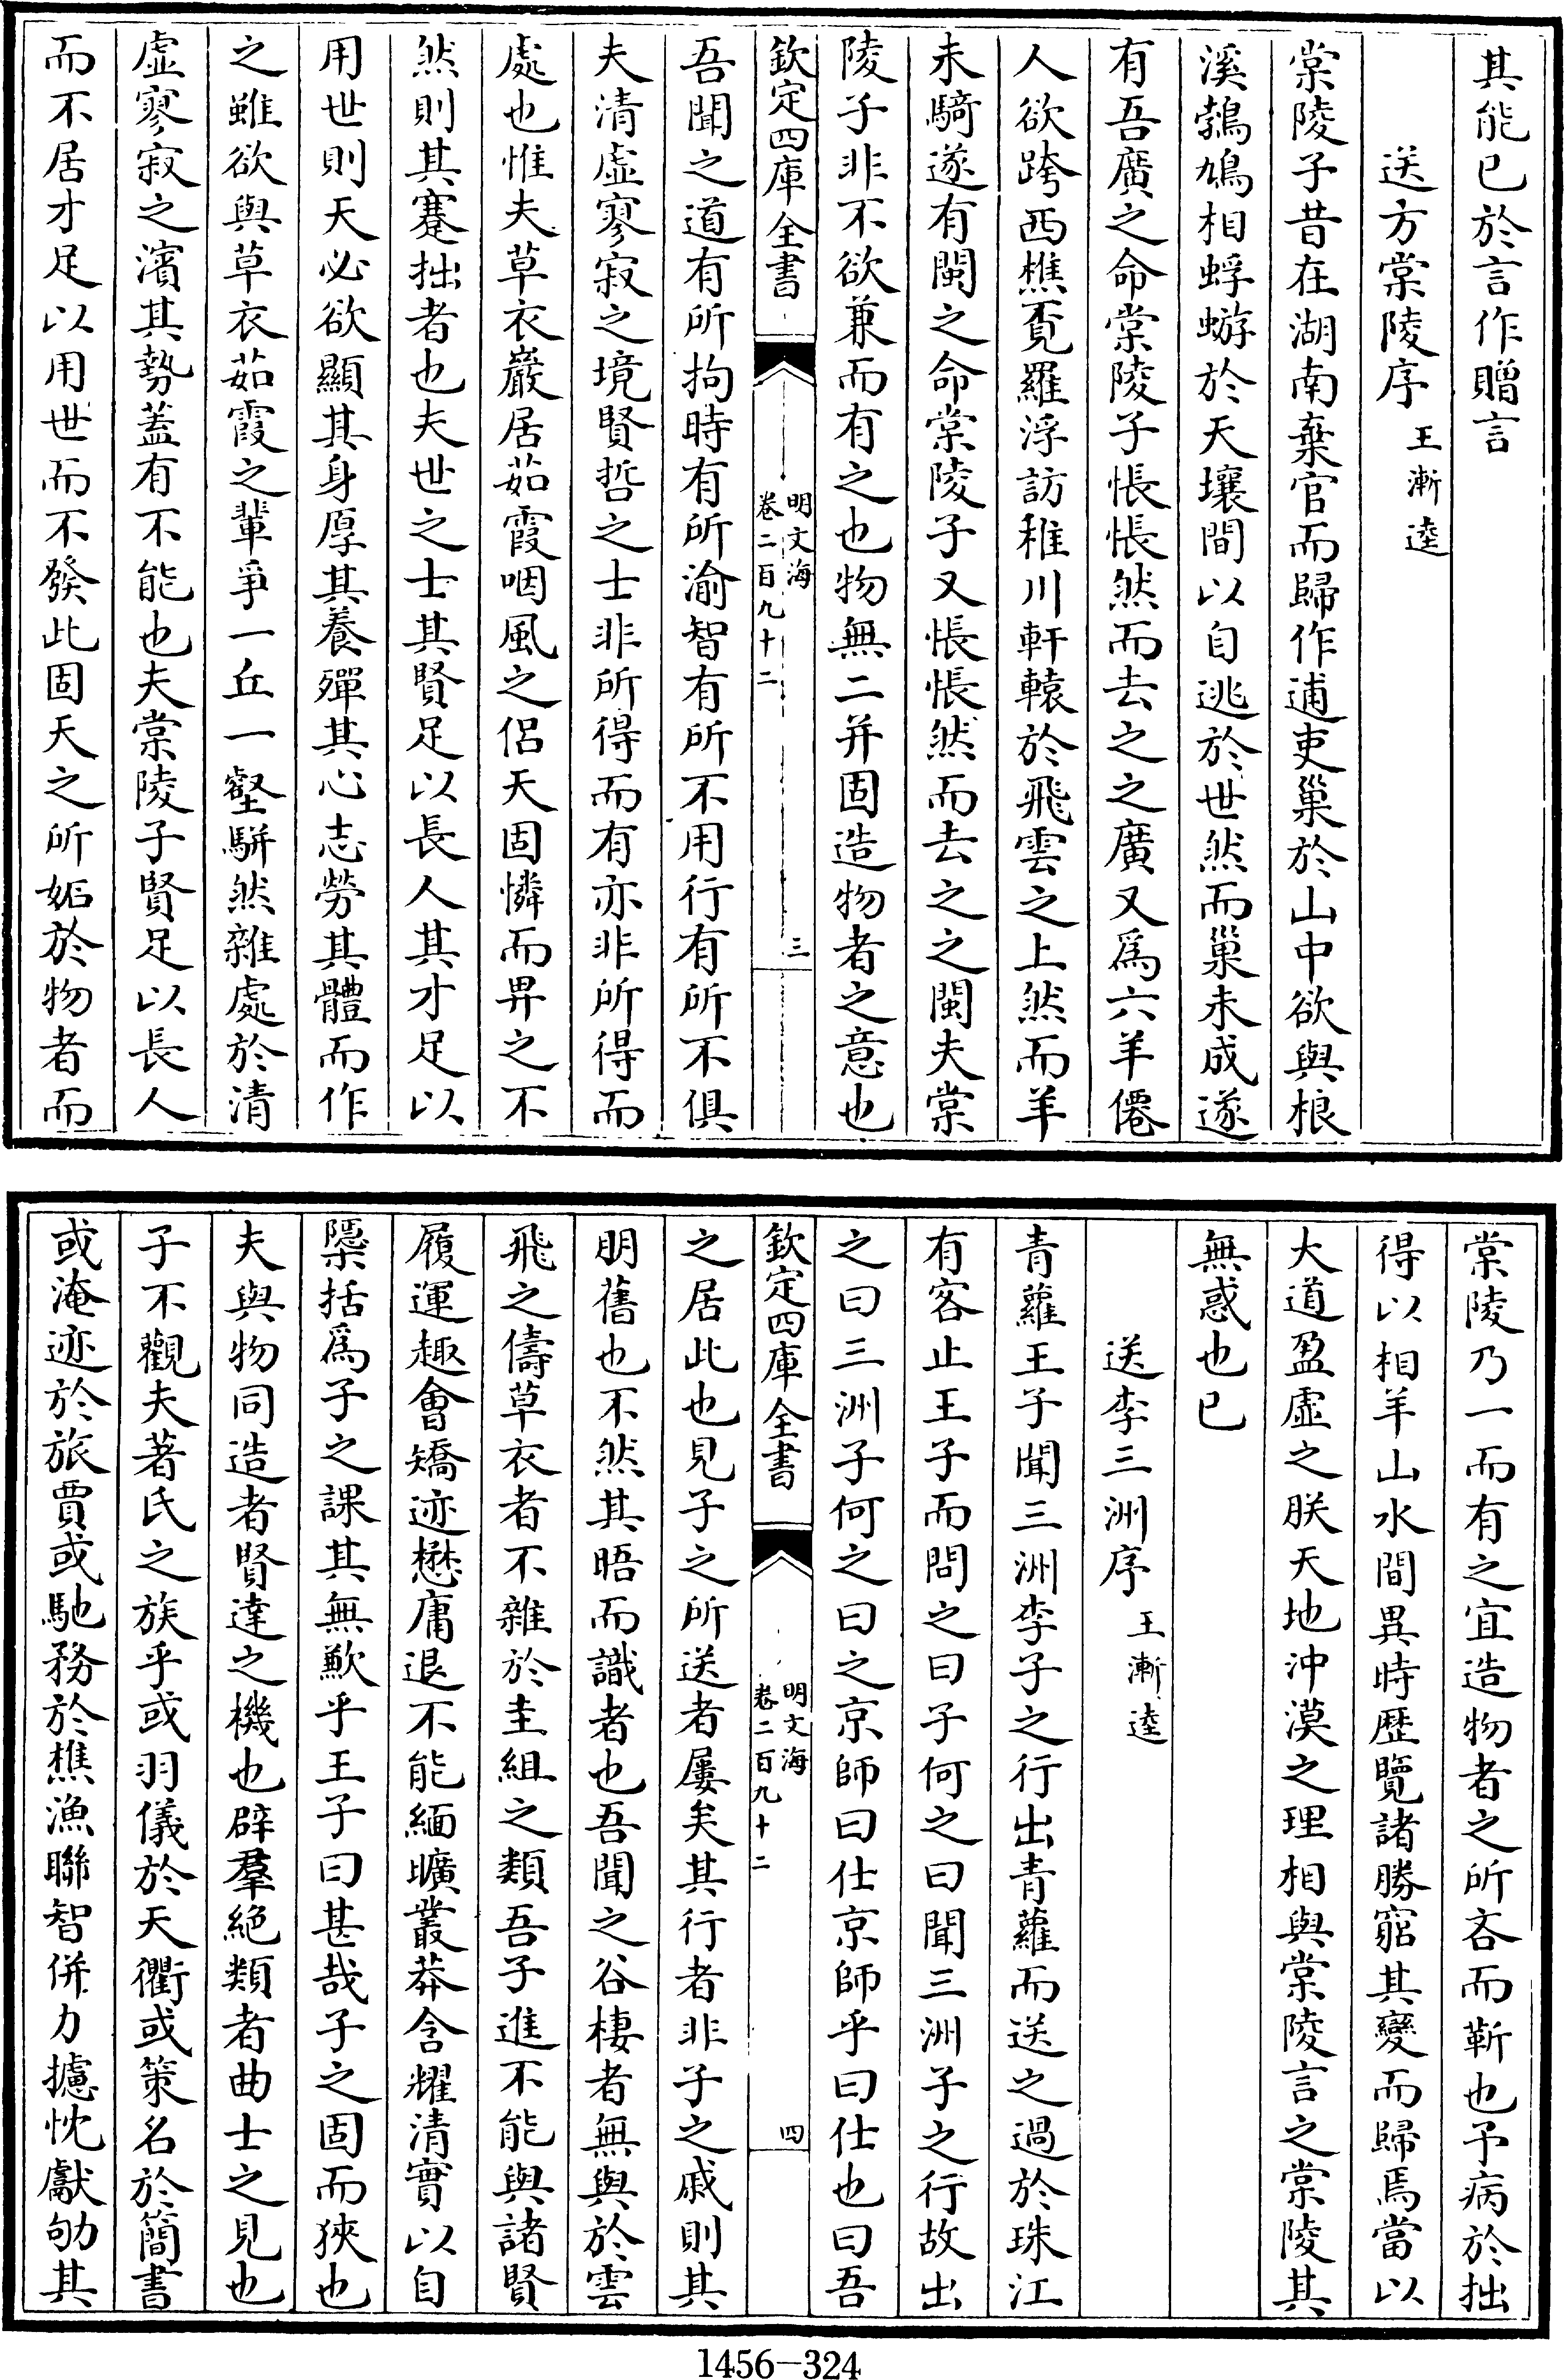 其能已於言作贈言
送方棠陵序 王漸逵
棠陵子昔在湖南棄官而歸作逋吏巢於山中欲與桹
溪鵁鳩相蜉蝣於天壤間以自逃於世然而巢未成遂
有吾廣之命棠陵子悵悵然而去之之廣又爲六羊僊
人欲跨西樵覔羅浮訪稚川軒轅於飛雲之上然而羊
未騎遂有閩之命棠陵子又悵悵然而去之之閩夫棠
陵子非不欲兼而有之也物無二并固造物者之意也
欽定四庫全書
明文海
卷二百九十二
三
吾聞之道有所拘時有所渝智有所不用行有所不俱
夫清虛寥寂之境賢哲之士非所得而有亦非所得而
處也惟夫草衣巖居茹霞咽風之侣天固憐而畀之不
然則其蹇拙者也夫世之士其賢足以長人其才足以
用世則天必欲顯其身厚其養殫其心志勞其體而作
之雖欲與草衣茹霞之輩爭一丘一壑駢然雜處於清
虛寥寂之濱其勢蓋有不能也夫棠陵子賢足以長人
而不居才足以用世而不發此固天之所妬於物者而
棠陵乃一而有之宜造物者之所吝而靳也予病於拙
得以相羊山水間異時歴覽諸勝窮其變而歸焉當以
大道盈虛之朕天地沖漠之理相與棠陵言之棠陵其
無惑也已
送李三洲序 王漸逵
青蘿王子聞三洲李子之行出青蘿而送之過於珠江
有客止王子而問之曰子何之曰聞三洲子之行故出
之曰三洲子何之曰之京師曰仕京師乎曰仕也曰吾
欽定四庫全書
明文海
卷二百九十二
四
之居此也見子之所送者屢矣其行者非子之戚則其
朋舊也不然其晤而識者也吾聞之谷棲者無與於雲
飛之儔草衣者不雜於圭組之類吾子進不能與諸賢
履運趣會矯迹懋庸退不能緬曠叢莽含耀清實以自
櫽括爲子之課其無歉乎王子曰甚哉子之固而狹也
夫與物同造者賢達之機也辟羣絶類者曲士之見也
子不觀夫著氏之族乎或羽儀於天衢或策名於簡書
或淹迹於旅賈或馳務於樵漁聯智併力攄忱獻劬其
1456-324